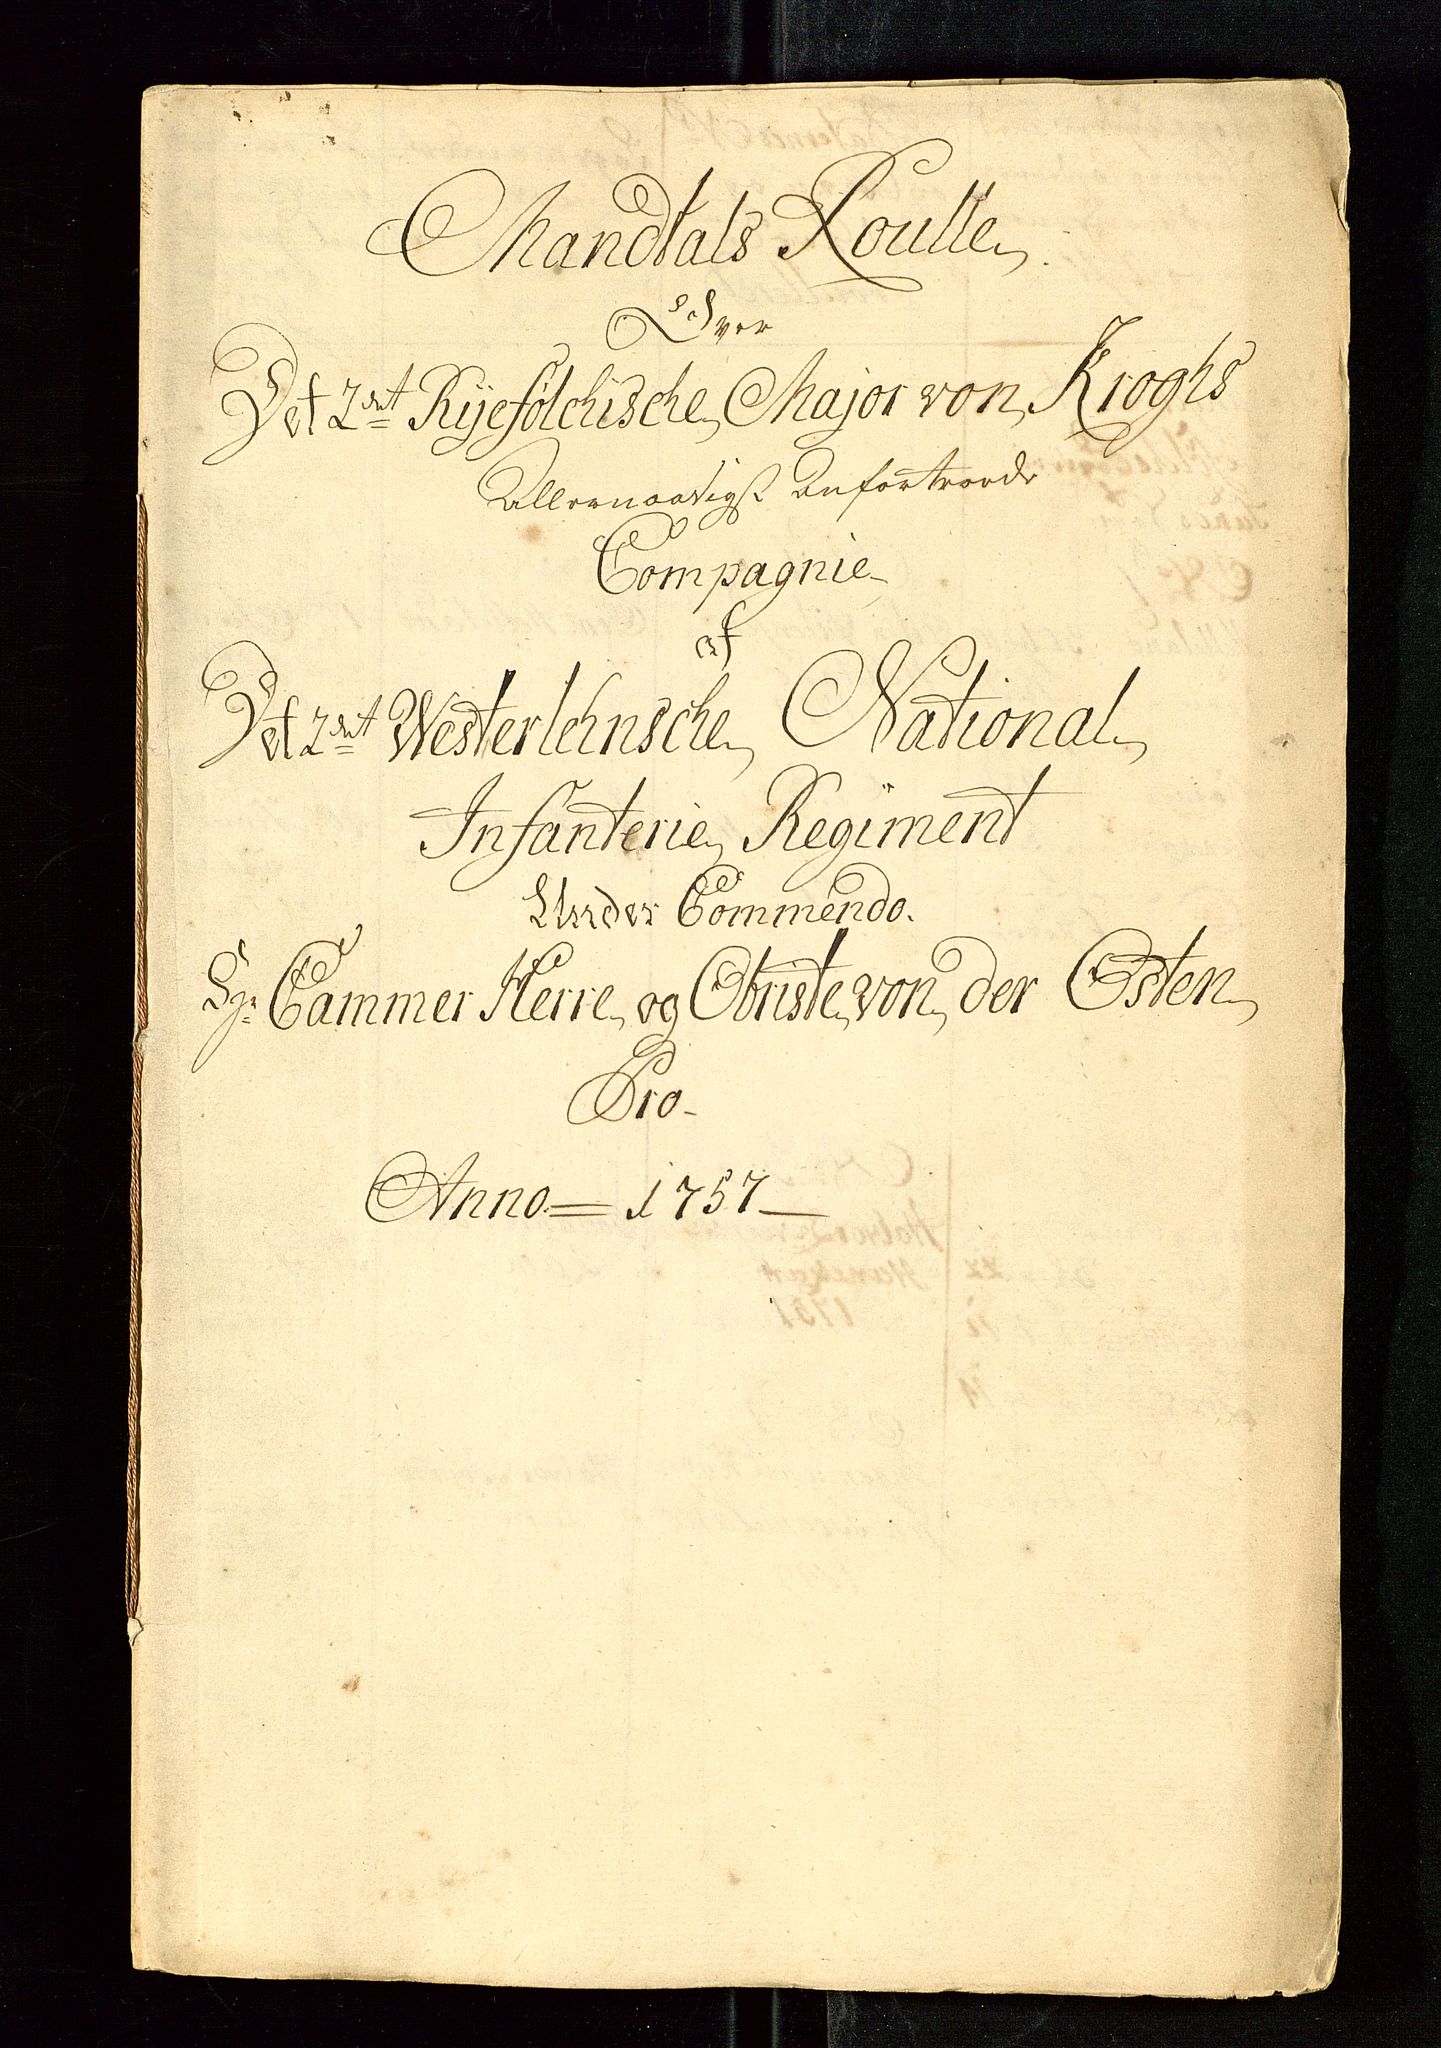 Mandtals Roulle
Over
Det 2det Ryefölchische Major von Kroghs
Allernaadigst Anfortroede
Compagnie
af
Det 2det Westerlehnsche National
Infanterie Regiment
Under Commendo
Hr Cammer Herre og Obriste von der Osten
Pro
Anno 1757